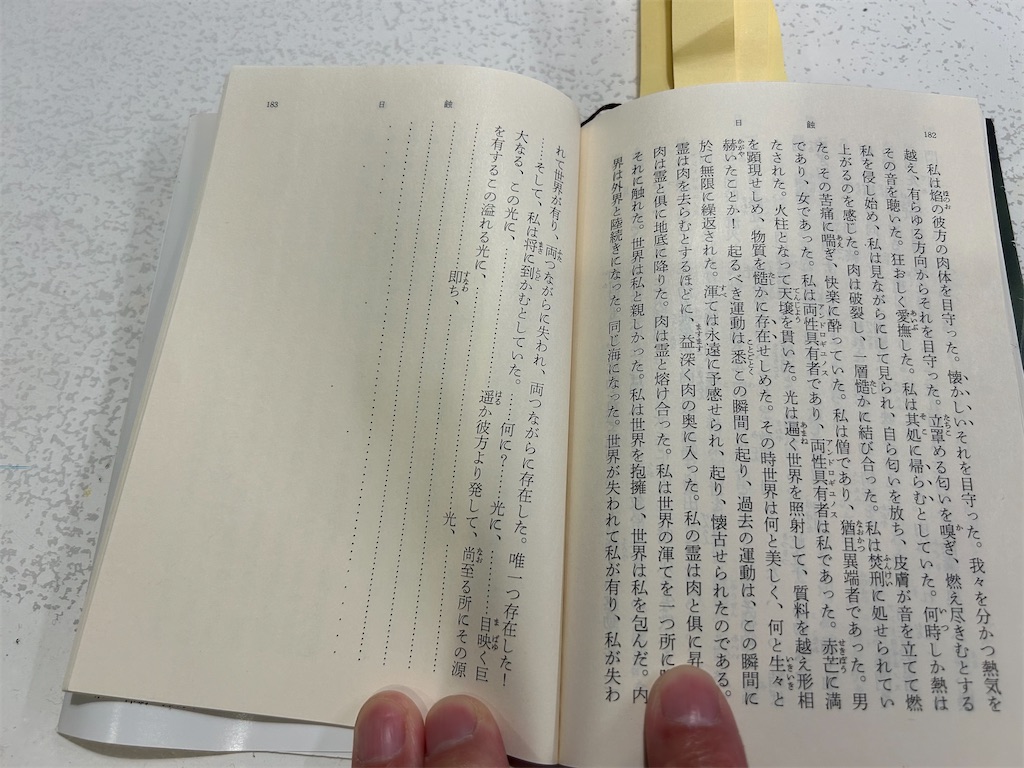 182
日蝕
私は焰の彼方の肉体を目守った。懐かしいそれを目守った。我々を分かつ熱気を
越え、有らゆる方向からそれを目守った。立罩める匂いを嗅ぎ、燃え尽きむとする
その音を聴いた。狂おしく愛撫した。私は其処に帰らむとしていた。何時しか熱は
私を侵し始め、私は見ながらにして見られ、自ら匂いを放ち、皮膚が音を立てて燃
上がるのを感じた。肉は破裂し、一層慥かに結び合った。私は焚刑に処せられてい
た。その苦痛に喘ぎ、快楽に酔っていた。私は僧であり、猶且異端者であった。男
であり、女であった。私は両性具有者であり、両性具有者は私であった。赤芒に満
たされた。火柱となって天壌を貫いた。光は遍く世界を照射して、質料を越え形相
を顕現せしめ、物質を慥かに存在せしめた。その時世界は何と美しく、何と生々と
赫いたことか! 起るべき運動は悉くこの瞬間に起り、過去の運動は、この瞬間に
於て無限に繰返された。渾ては永遠に予感せられ、起り、懐古せられたのである。
霊は肉を去らむとするほどに、益深く肉の奥に入った。私の霊は肉と倶に昇
肉は霊と倶に地底に降りた。肉は霊と熔け合った。私は世界の渾てを一つ所に
それに触れた。世界は私と親しかった。私は世界を抱擁し、世界は私を包んだ。内
界は外界と陸続きになった。同じ海になった。世界が失われて私が有り、私が失わ
183
日蝕
れて世界が有り、両つながらに失われ、両つながらに存在した。唯一つ存在した!
……そして、私は将に到かむとしていた。……何に? 光に、……目映く巨
大なる、この光に、…………遥か彼方より発して、尚至る所にその源
を有するこの溢れる光に、…………光、
…………即ち、…………